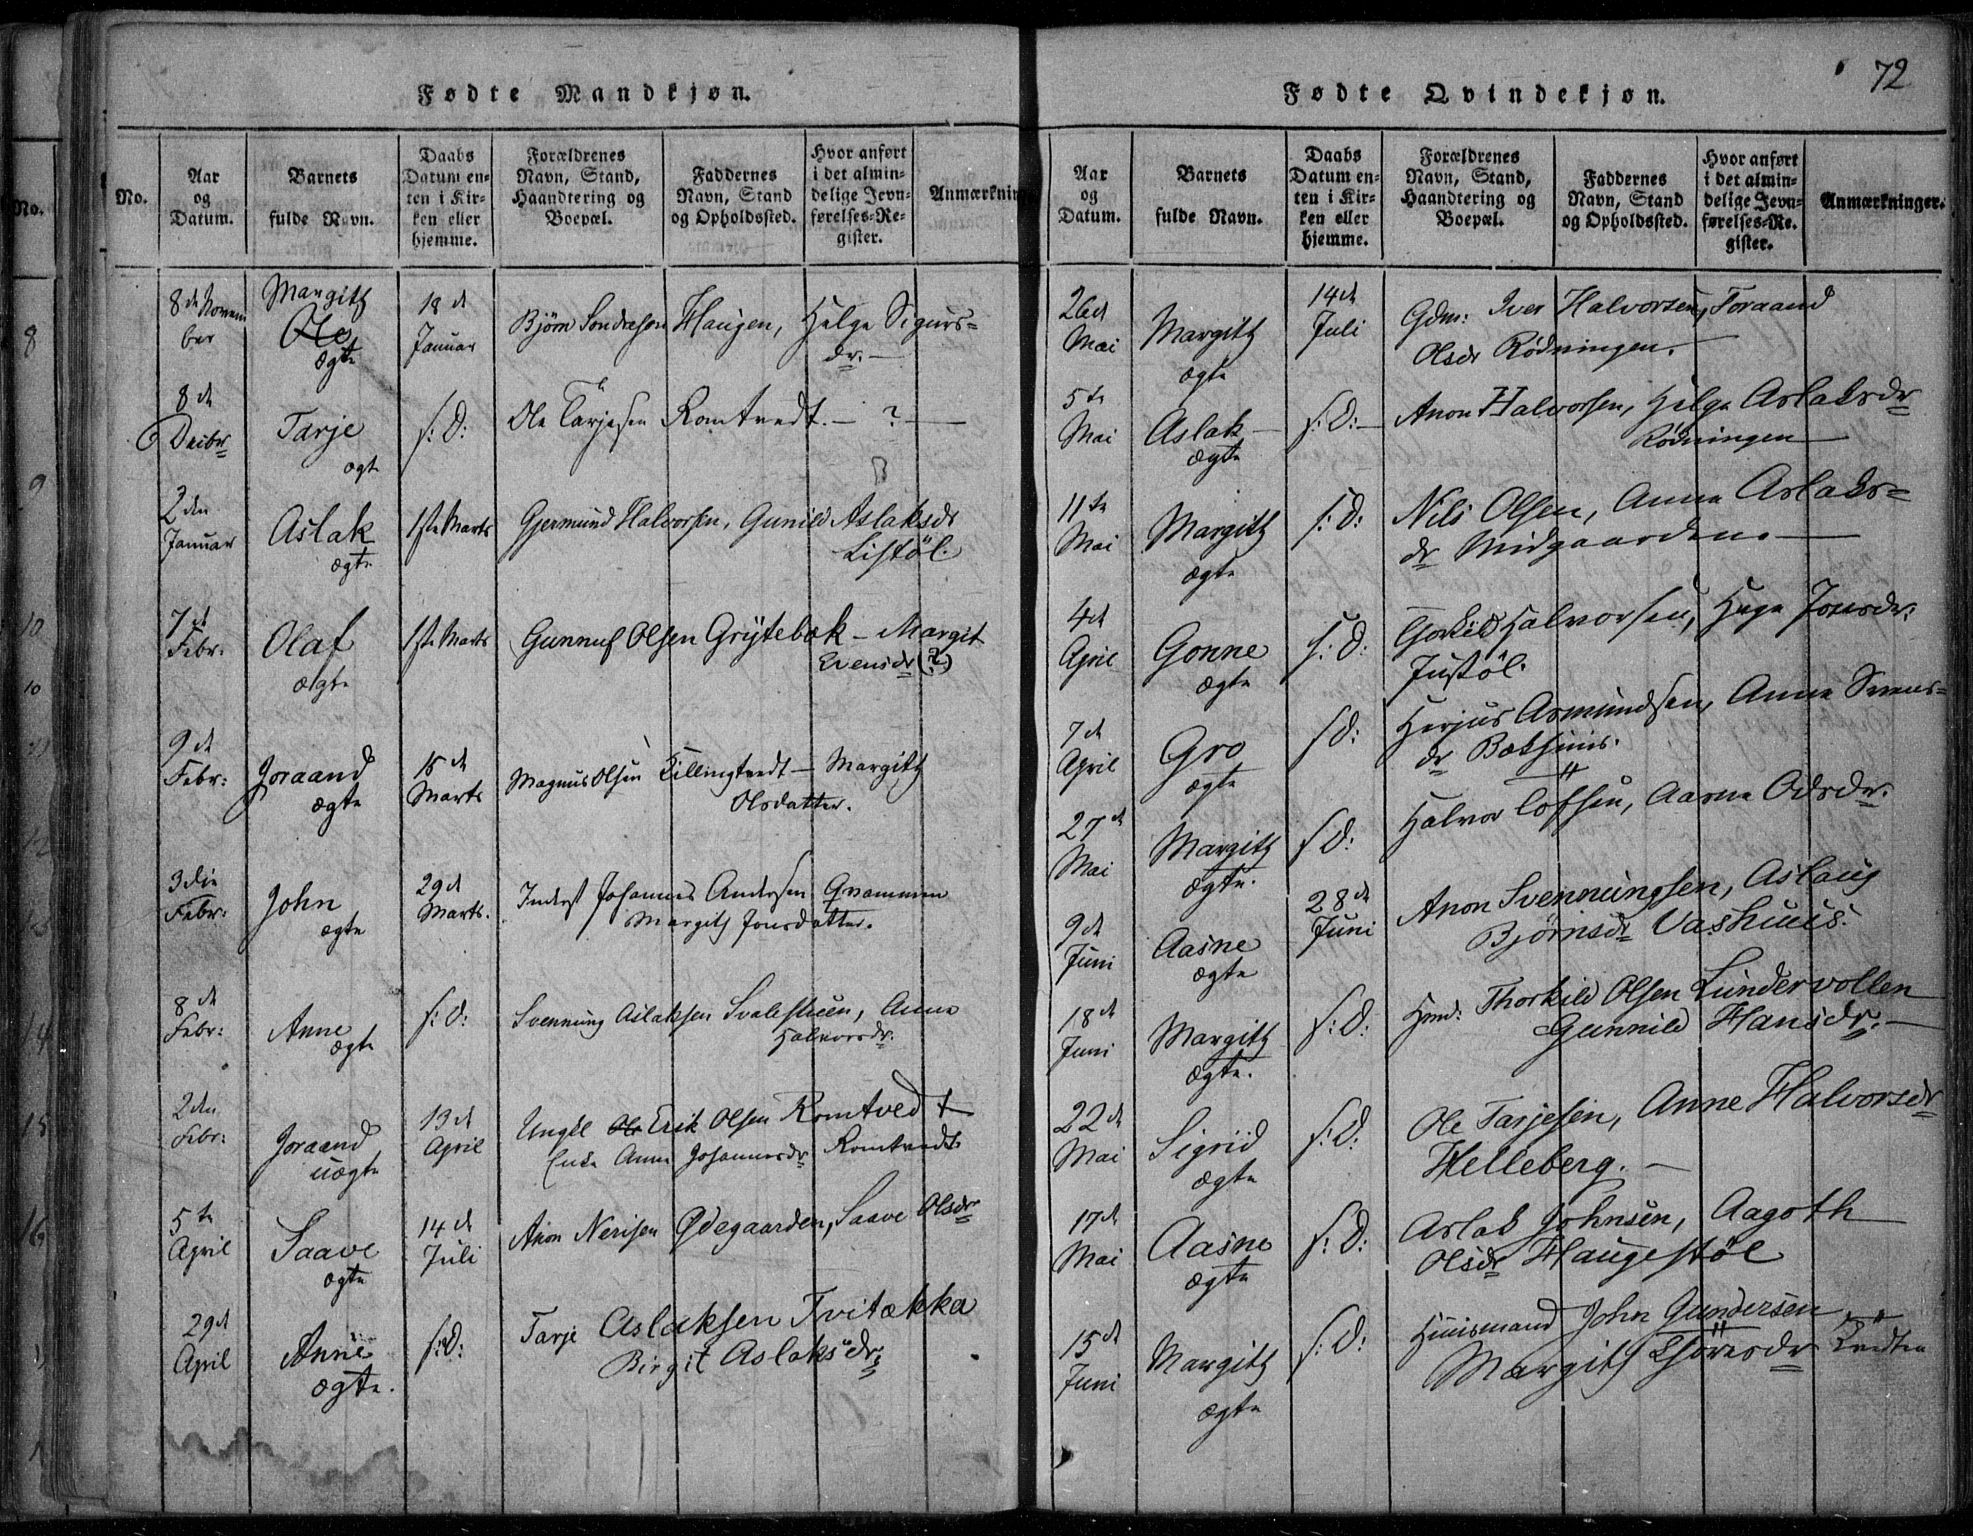 Fødte Mandkjøn.
No.
Aar og Datum.
Barnets fulde Navn.
Daabs Datum enten i Kirken eller hjemme.
Forældrenes Navn, Stand, Haandtering og Boepæl.
Faddernes Navn, Stand og Opholdssted.
Hvor anført i det almindelige Jevnførelses-Register.
Anmærknin
8de Novem
ber
Margith
Ole
ægte
18de
Januar
Bjørn Sondresøn Haugen, Helge Sigurs=
dr. —
8de
Decbr
Tarje
ægte
s: D:
Ole Tarjesen Romtvedt. — ? —
2den
Januar
Aslak
ægte
1ste Marts
Gjermund Halvorsen, Gunild Aslaksdr
Listøl.
7de
Febr:
Olaf
ægte
1ste Marts
Gunnuf Olsen Grytebæk – Margit
Evensdr (?)
9de
Febr:
Joraand
ægte
15de
Marts
Magnus Olsen Killingtvedt — Margith
Olsdatter.
3die
Febr:
John
ægte
29de
Marts.
Inderst Johannes Andersen Qvammen
Margith Jonsdatter.
8de
Febr:
Anne
ægte
s: D:
Svennung Aslaksen Svalestuen, Anne
Halvorsdr.
2den
Febr:
Joraand
uægte
13de
April
Ungkl Ole Erik Olsen Romtvedt
Enke Anne Johannesdr Romtvedt.
5te
April
Saave
ægte
14de
Juli
Anon Nerisen Ødegaarden, Saave Olsdr
29de
April
Anne
ægte.
s: D:
Tarje Aslaksen Tvitækka
Birgit Aslaksdr.
72
Fødte Qvindekjøn.
Aar og Datum.
Barnets fulde Navn.
Daabs Datum enten i Kirken eller hjemme.
Forældrenes Navn, Stand, Haandtering og Boepæl.
Faddernes Navn, Stand og Opholdssted.
Hvor anført i det almindelige Jevnførelses-Register.
Anmærkninger.
26de
Mai
Margith
ægte
14de
Juli
Gdm: Iver Halvorsen, Joraand
Olsdr Rødningen.
5te
Mai
Aslak
ægte
s: D:
Anon Halvorsen, Helge Aslaksdr
Rødningen
11te
Mai
Margith
ægte
s: D:
Nils Olsen, Anne Aslaks=
dr Midgaarden.
4de
April
Gonne
ægte
s: D:
Thorkild Halvorsen, Hæge Jonsdr.
Justøl.
7de
April
Gro
ægte
s D:
Herjus Asmundsen, Anne Svens=
dr Bækhuus.
27de
Mai
Margith
ægte.
s D:
Halvor Tofsen, Aasne Odsdr.
9de
Juni
Aasne
ægte
28de
Juni
Anon Svennungsen, Aslaug
Bjørnsdr Vashuus.
18de
Juni
Margith
ægte.
s: D:
Hmd: Thorkild Olsen Lundervollen
Gunnild Hansdr. —
22de
Mai
Sigrid
ægte
s: D:
Ole Tarjesen, Anne Halvorsdr
Helleberg. —
17de
Mai
Aasne
ægte
s: D:
Aslak Johnsen, Aagoth
Olsdr Haugestøl
15de
Juni
Margith
ægte
s: D:
Huusmand John Gundersen
Margith Thoresdr